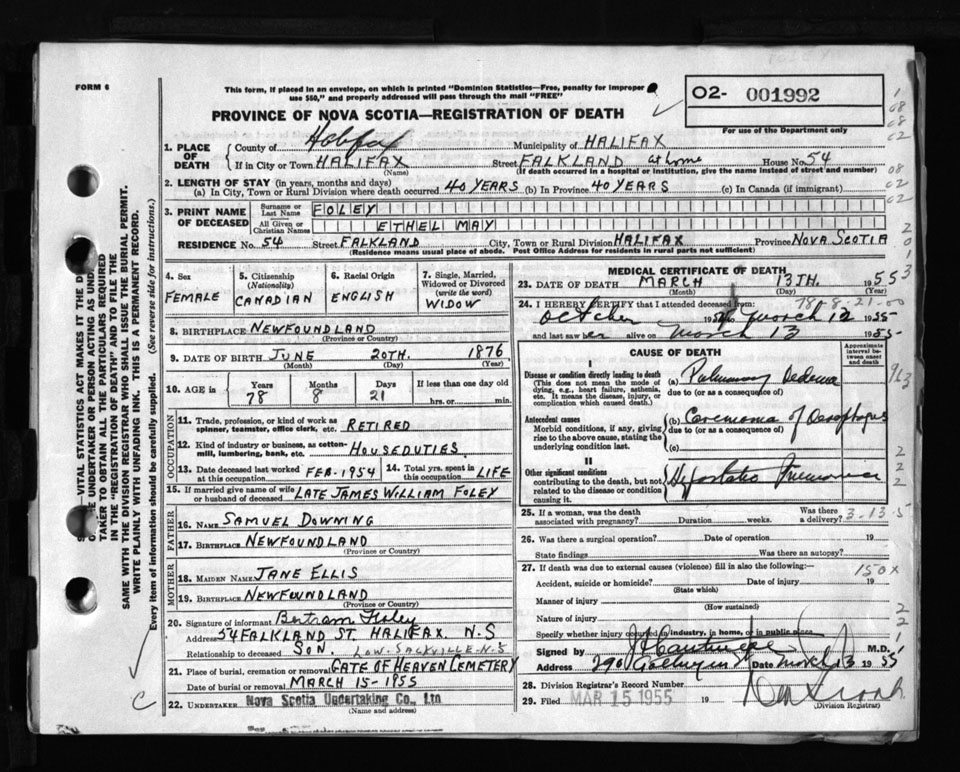 FORM 6
This form, if placed in an envelope, on which is printed "Dominion Statistics—Free, penalty for improper
use $50," and properly addressed will pass through the mail "FREE"
PROVINCE OF NOVA SCOTIA—REGISTRATION OF DEATH
O2- 001992
For use of the Department only
1. PLACE OF DEATH
County of Halifax
Municipality of HALIFAX
If in City or Town HALIFAX
(Name)
Street FALKLAND at home House No. 54
(If death occurred in a hospital or institution, give the name instead of street and number)
2. LENGTH OF STAY (in years, months and days)
(a) In City, Town or Rural Division where death occurred 40 YEARS (b) In Province 40 YEARS (c) In Canada (if immigrant)
3. PRINT NAME OF DECEASED
Surname or Last Name FOLEY
All Given or Christian Names ETHEL MAY
RESIDENCE No. 54 Street FALKLAND City, Town or Rural Division HALIFAX Province NOVA SCOTIA
(Residence means usual place of abode. Post Office Address for residents in rural parts not sufficient)
4. Sex
FEMALE
5. Citizenship
(Nationality)
CANADIAN
6. Racial Origin
ENGLISH
7. Single, Married, Widowed or Divorced
(write the word)
WIDOW
8. BIRTHPLACE NEWFOUNDLAND
(Province or Country)
9. DATE OF BIRTH JUNE 20TH. 1876
(Month) (Day) (Year)
10. AGE in
Years 78
Months 8
Days 21
If less than one day old
hrs. or min.
OCCUPATION
11. Trade, profession, or kind of work as
spinner, teamster, office clerk, etc. RETIRED
12. Kind of industry or business, as cotton-
mill, lumbering, bank, etc. HOUSEDUTIES.
13. Date deceased last worked
at this occupation FEB.-1954
14. Total yrs. spent in
this occupation LIFE
15. If married give name of wife
or husband of deceased LATE JAMES WILLIAM FOLEY
FATHER
16. NAME SAMUEL DOWNING
17. BIRTHPLACE NEWFOUNDLAND
(Province or Country)
MOTHER
18. MAIDEN NAME JANE ELLIS
19. BIRTHPLACE NEWFOUNDLAND
(Province or Country)
20. Signature of informant Bertram Foley
Address 54 FALKLAND ST. HALIFAX. N.S
Relationship to deceased SON. LOW. SACKVILLE-N-S
21. Place of burial, cremation or removal GATE OF HEAVEN CEMETERY
Date of burial or removal MARCH 15-1955
22. UNDERTAKER Nova Scotia Undertaking Co., Ltd
(Name and address)
MEDICAL CERTIFICATE OF DEATH
23. DATE OF DEATH MARCH 13TH. 1955
(Month) (Day) (Year)
78-8-21-00
24. I HEREBY CERTIFY that I attended deceased from:
October 1954 to March 12 1955
and last saw her alive on March 13 1955
CAUSE OF DEATH
Approximate interval between onset and death
I
Disease or condition directly leading to death
(This does not mean the mode of
dying, e.g., heart failure, asthenia,
etc. It means the disease, injury, or
complication which caused death.)
(a) Pulmonary Oedema
due to (or as a consequence of)
Antecedent causes
Morbid conditions, if any, giving
rise to the above cause, stating the
underlying condition last.
(b) Carcinoma of Oesophagus
due to (or as a consequence of)
(c)
II
Other significant conditions
contributing to the death, but not
related to the disease or condition
causing it.
Hypostatic Pneumonia
25. If a woman, was the death
associated with pregnancy? Duration weeks. Was there a delivery?
3-13-5
26. Was there a surgical operation? Date of operation 19
State findings Was there an autopsy?
27. If death was due to external causes (violence) fill in also the following:
150X
Accident, suicide or homicide? Date of injury 19
(State which)
Manner of injury
(How sustained)
Nature of injury
Specify whether injury occurred in industry, in home, or in public place
Signed by M.D.
Address 290 Date March 13 1955
28. Division Registrar's Record Number
29. Filed MAR 15 1955 19
(Division Registrar)
VITAL STATISTICS ACT MAKES IT THE
UNDERTAKER OR PERSON ACTING AS
TAKER TO OBTAIN ALL THE PARTICULARS REQUIRED
IN THE "REGISTRATION OF DEATH" AND TO FILE THE
SAME WITH THE DIVISION REGISTRAR WHO SHALL ISSUE THE BURIAL PERMIT.
WRITE PLAINLY WITH UNFADING INK. THIS IS A PERMANENT RECORD.
Every item of information should be carefully supplied. (See reverse side for instructions.)
C